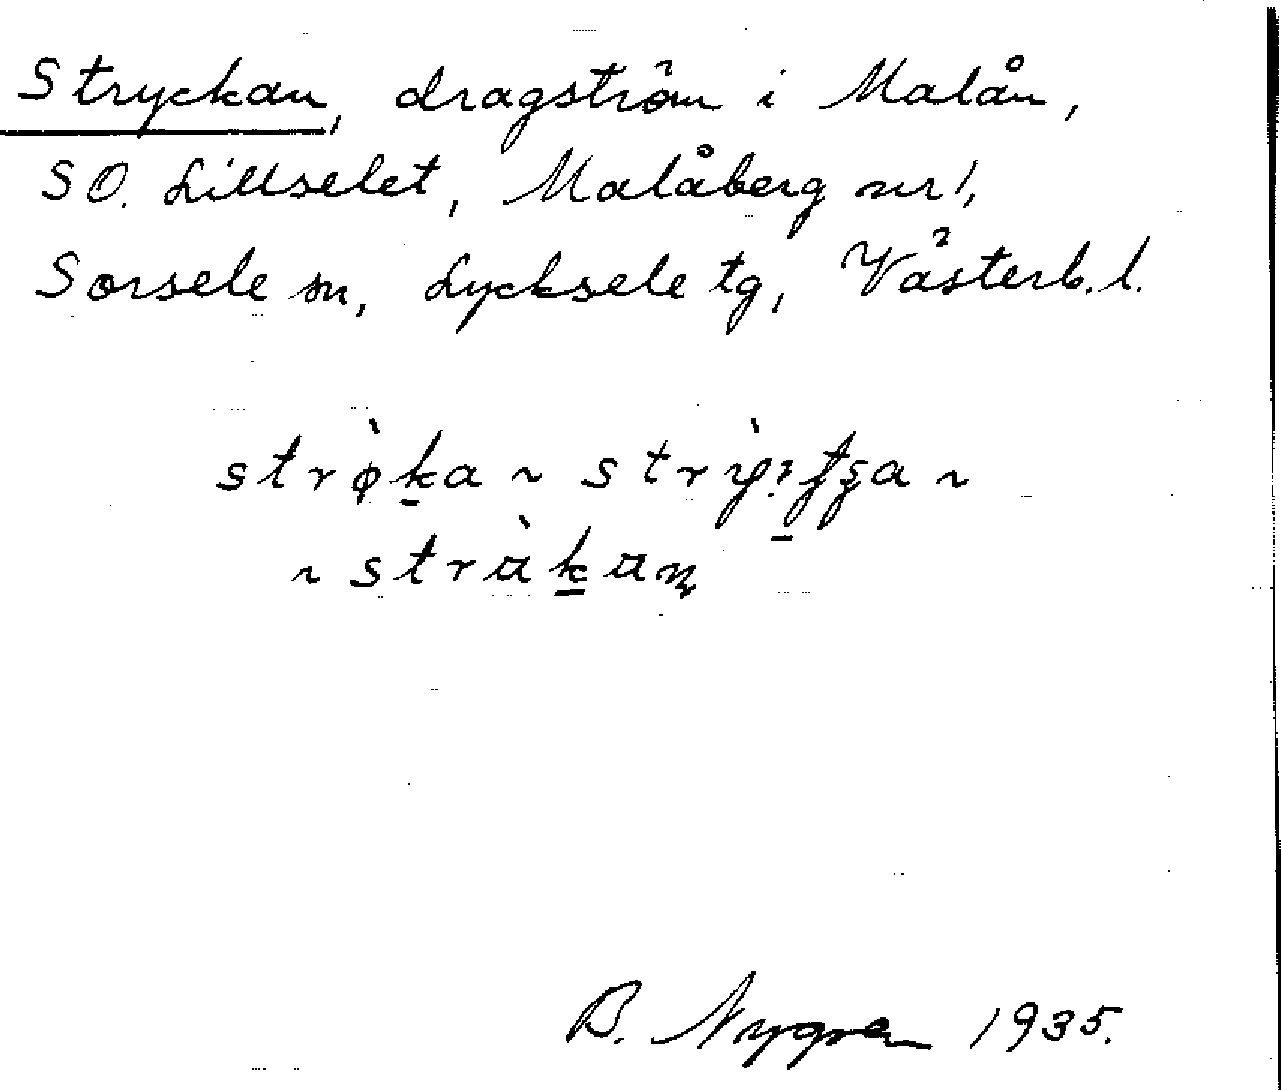 Stryckan, dragström i Malån,
SO. Lillselet, Malåberg nr 1,
Sorsele sn, Lycksele tg, Västerb. l.
strø̀ka ~
~ strɑ̀kɑn
B. Nygren 1935.